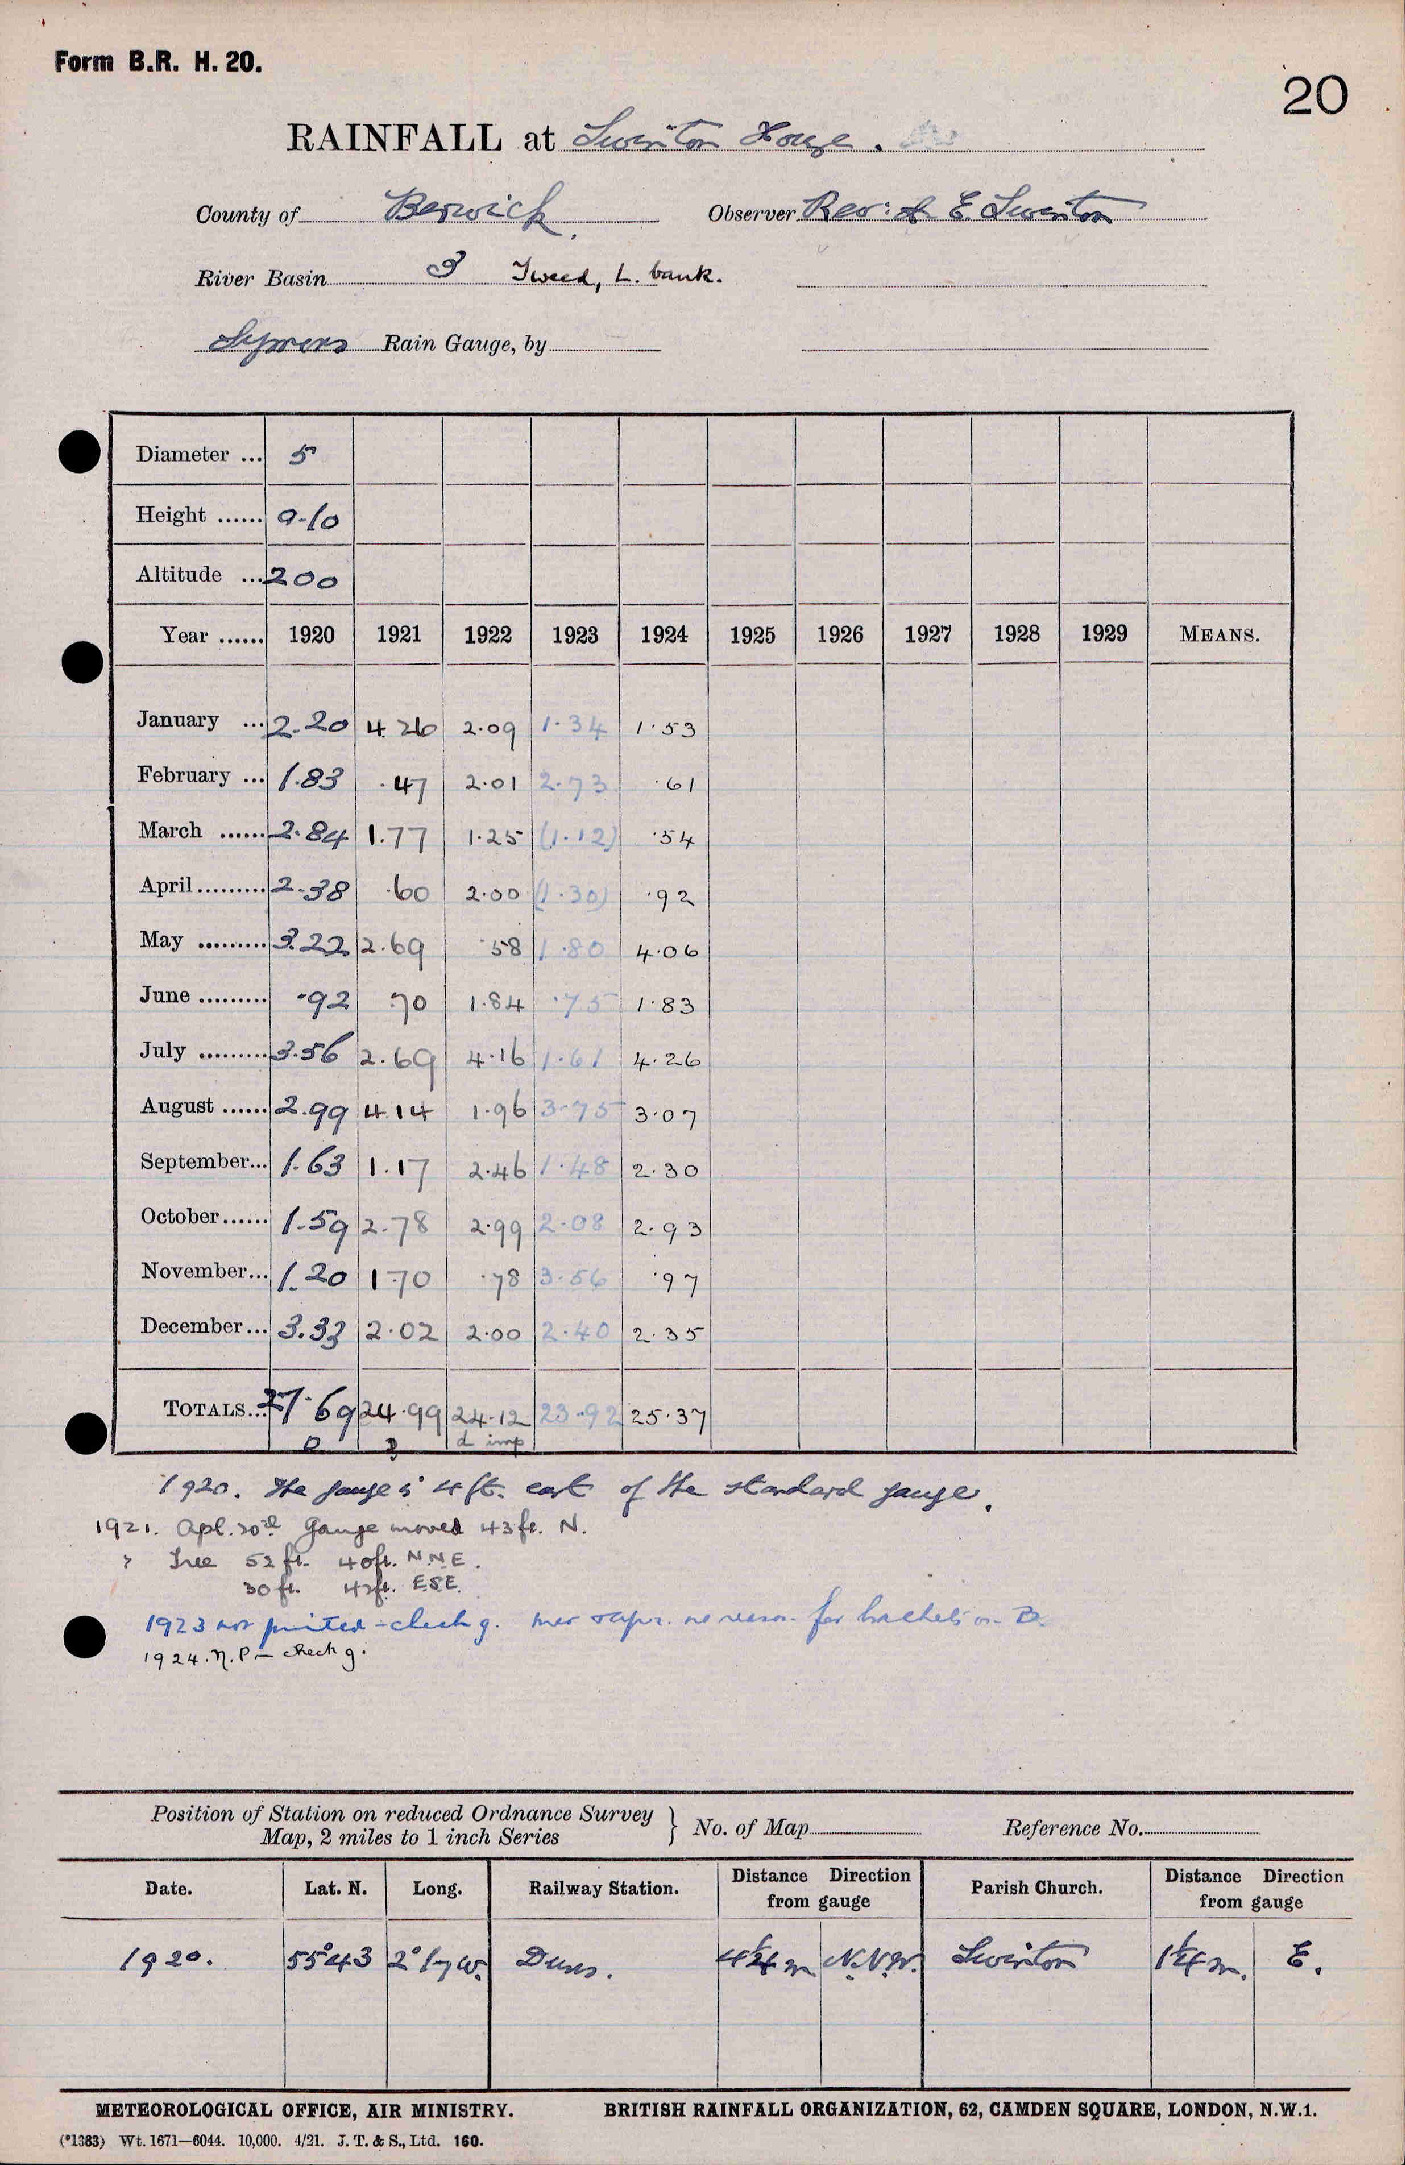 Form B.R. H. 20.
20
RAINFALL at Swinton House.
County of Berwick. Observer Rev: A E Swinton
River Basin 3 Tweed, L. bank.
Symons Rain Gauge, by
Diameter ... 5
Height ...... 0-10
Altitude ... 200
Year ...... 1920 1921 1922 1923 1924 1925 1926 1927 1928 1929 MEANS.
January ... 2.20 4.26 2.09 1.34 1.53
February ... 1.83 .47 2.01 2.73 .61
March ...... 2.84 1.77 1.25 (1.12) .54
April ......... 2.38 .60 2.00 (1.30) .92
May ......... 3.22 2.69 .58 1.80 4.06
June ......... .92 .70 1.84 .75 1.83
July ......... 3.56 2.69 4.16 1.61 4.26
August ...... 2.99 4.14 1.96 3.75 3.07
September... 1.63 1.17 2.46 1.48 2.30
October...... 1.59 2.78 2.99 2.08 2.93
November... 1.20 1.70 .78 3.56 .97
December... 3.33 2.02 2.00 2.40 2.35
TOTALS... 27.69 24.99 24.12 23.92 25.37
d imp
1920. The gauge is 4 ft. east of the standard gauge.
1921. Apl. 20th Gauge moved 43 ft. N.
" Tree 52 ft. 40 ft. N.N.E.
30 ft. 42 ft. E.S.E.
1923 not printed - check g. no reason for brackets on B.
1924. N.P - check g.
Position of Station on reduced Ordnance Survey
Map, 2 miles to 1 inch Series } No. of Map Reference No.
Date. Lat. N. Long. Railway Station. Distance Direction from gauge Parish Church. Distance Direction from gauge
1920. 55°43 2°17 W. Duns. 4¼ m N.N.W. Swinton 1¼ m. E.
METEOROLOGICAL OFFICE, AIR MINISTRY. BRITISH RAINFALL ORGANIZATION, 62, CAMDEN SQUARE, LONDON, N.W.1.
(*1383) Wt. 1671—6044. 10,000. 4/21. J. T. & S., Ltd. 160.